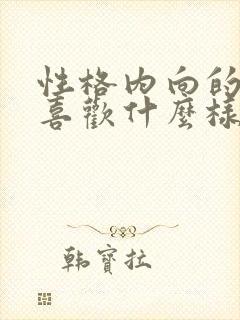 性格内向的
喜歡什麼樣
韩寶拉